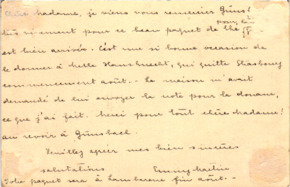 Chère madame, je viens vous remercier
pour le
sincèrement pour ce beau paquet de thé
est bien arrivée. C'est une si bonne occasion de
le donner à Melle Haussknecht, qui quitte Strasbourg
commencement août. - la maison m'avait
demandé de lui envoyer la note pour la douane,
ce que j'ai fait. Merci pour tout chère madame!
au revoir à Günsbach.
Veuillez agréer mes bien sincères
salutations Emmy Martin
Votre paquet va à Lambarene fin août. -